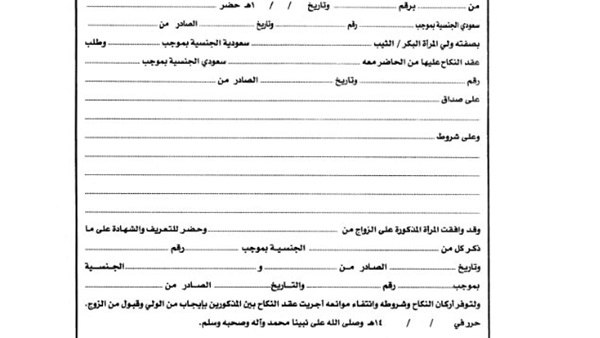 من ........ برقم ........ وتاريخ / / ١هـ حضر ........
سعودي الجنسية بموجب ........ رقم ........ وتاريخ ........ الصادر من ........
بصفته ولي المرأة البكر / الثيب ........ سعودية الجنسية بموجب ........ وطلب
عقد النكاح عليها من الحاضر معه ........ سعودي الجنسية بموجب ........
رقم ........ وتاريخ ........ الصادر من ........
على صداق ........
........
وعلى شروط ........
........
........
........
........
وقد وافقت المرأة المذكورة على الزواج من ........ وحضر للتعريف والشهادة على ما
ذكر كل من ........ الجنسية بموجب ........ رقم ........
وتاريخ ........ الصادر من ........ و ........ الجنسية
بموجب ........ رقم ........ والتاريخ ........ الصادر من ........
ولتوفر أركان النكاح وشروطه وانتفاء موانعه أجريت عقد النكاح بين المذكورين بإيجاب من الولي وقبول من الزوج.
حرر في / / ١٤هـ وصلى الله على نبينا محمد وآله وصحبه وسلم.